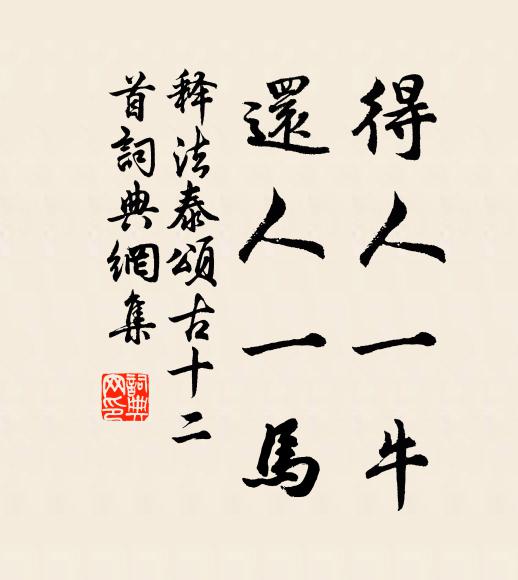 得人一牛
還人一馬
释法泰頌古十二
首詞典網集
詞典
网印